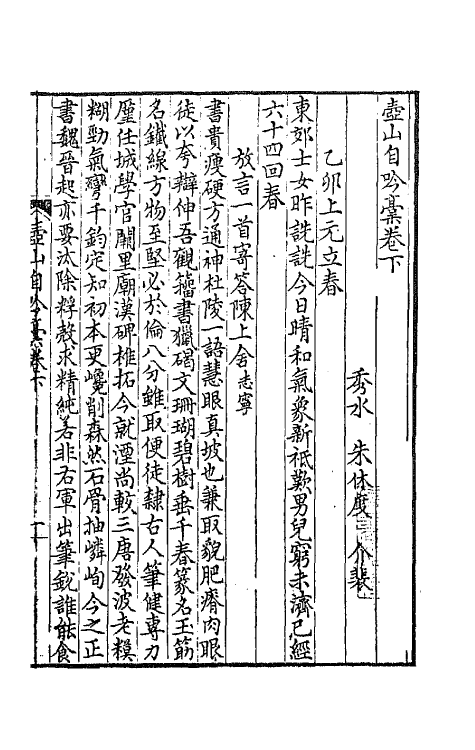 壺山自吟稾卷下
秀水 朱休度 介裴
乙卯上元立春
東郊士女昨詵詵今日晴和氣象新祗歎男兒窮未濟已經
六十四回春
放言一首寄答陳上舍志寧
書貴瘦硬方通神杜陵一語慧眼真坡也兼取貌肥瘠肉眼
徒以夸辯伸吾觀籀書獵碣文珊瑚碧樹垂千春篆名玉筯
名鐵線方物至堅必於倫八分雖取便徒隸古人筆健專力
厪任城學官闕里廟漢碑椎拓今就湮尚較三唐發波老模
糊勁氣彎千鈞定知初本更巉削森然石骨抽嶙峋今之正
書魏晉起亦要汰除粰㪍求精純若非右軍出筆銳誰能食
壺山自吟稾卷下